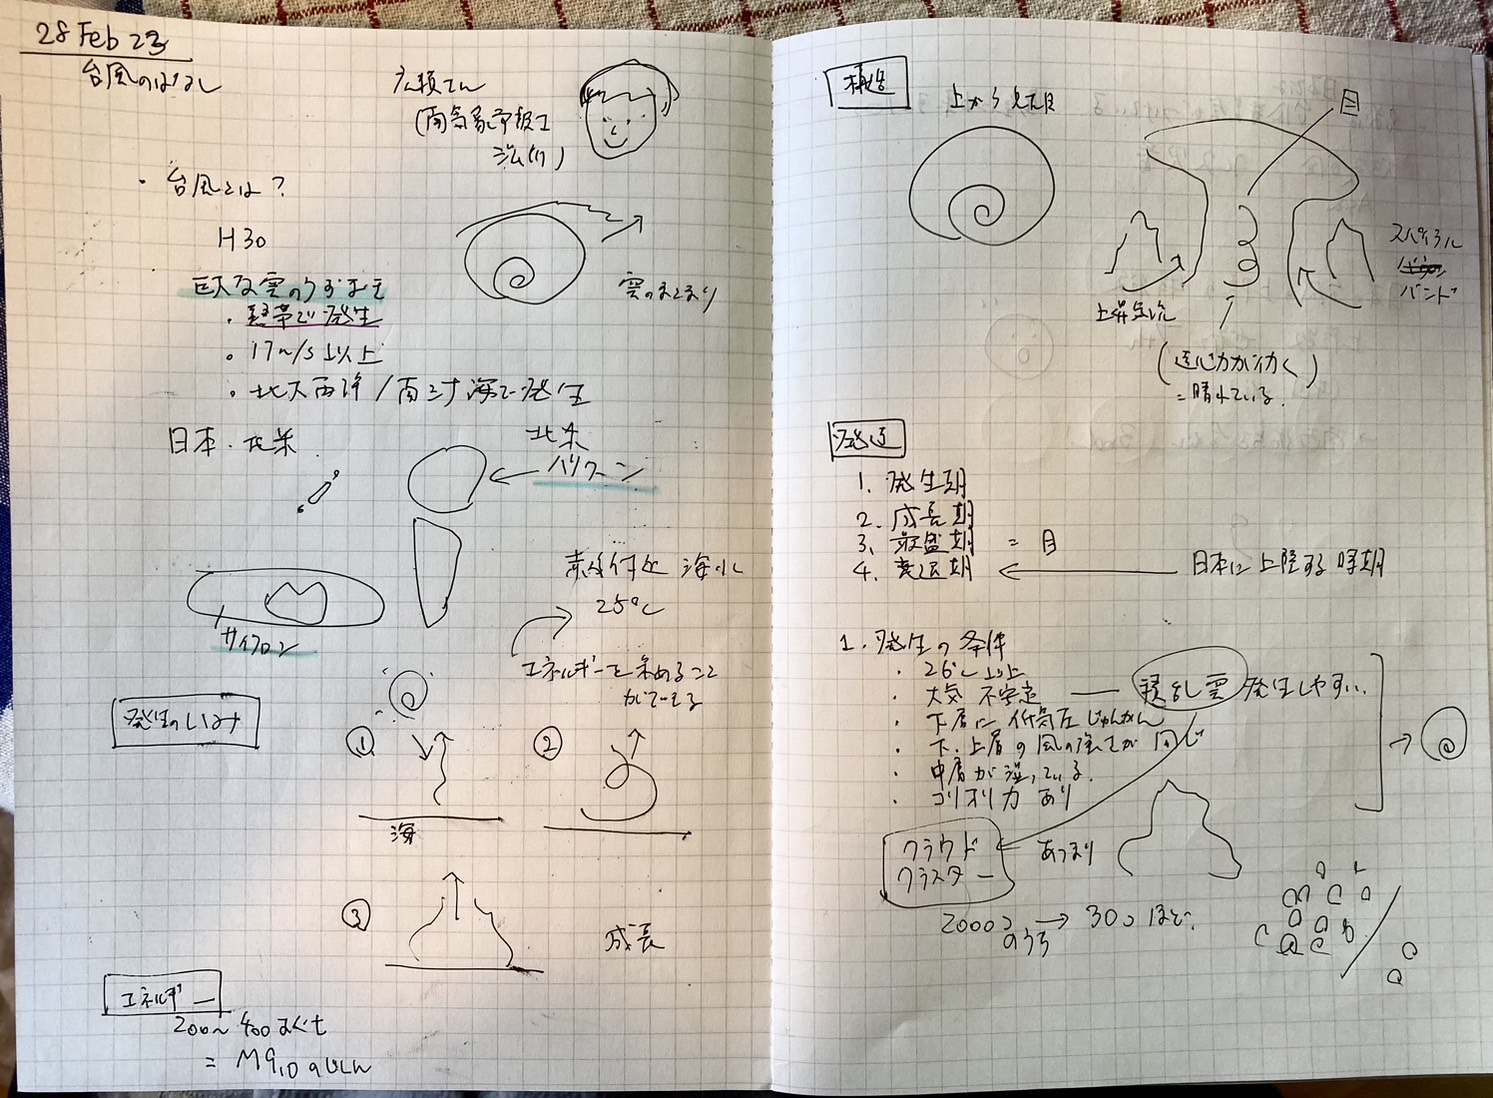 28 Feb 23
台風のはなし
台風とは?
H30
巨大な雲のうずまき
・熱帯で発生
・17m/s以上
・北大西洋/南シナ海で発生
雲のまとまり
日本・北米
北米
ハリケーン
サイクロン
赤道付近 海水
25℃
エネルギーを集めること
ができる
発生のしくみ
①
海
②
③
成長
エネルギー
200〜400まぐt
= M9,10のじしん
構造
上から見た目
目
スパイラル
バンド
上昇気流
(遠心力が働く)
=晴れている.
発達
1. 発生期
2. 成長期
3. 最盛期 = 目
4. 衰退期
日本に上陸する時期
1. 発生の条件
・26℃以上
・大気 不安定 — 積乱雲 発生しやすい.
・下層に低気圧じゅんかん
・下.上層の風の強さが同じ
・中層が湿っている.
・コリオリ力 あり
クラウド
クラスター
あつまり
2000コ → 30コ ほど.
のうち